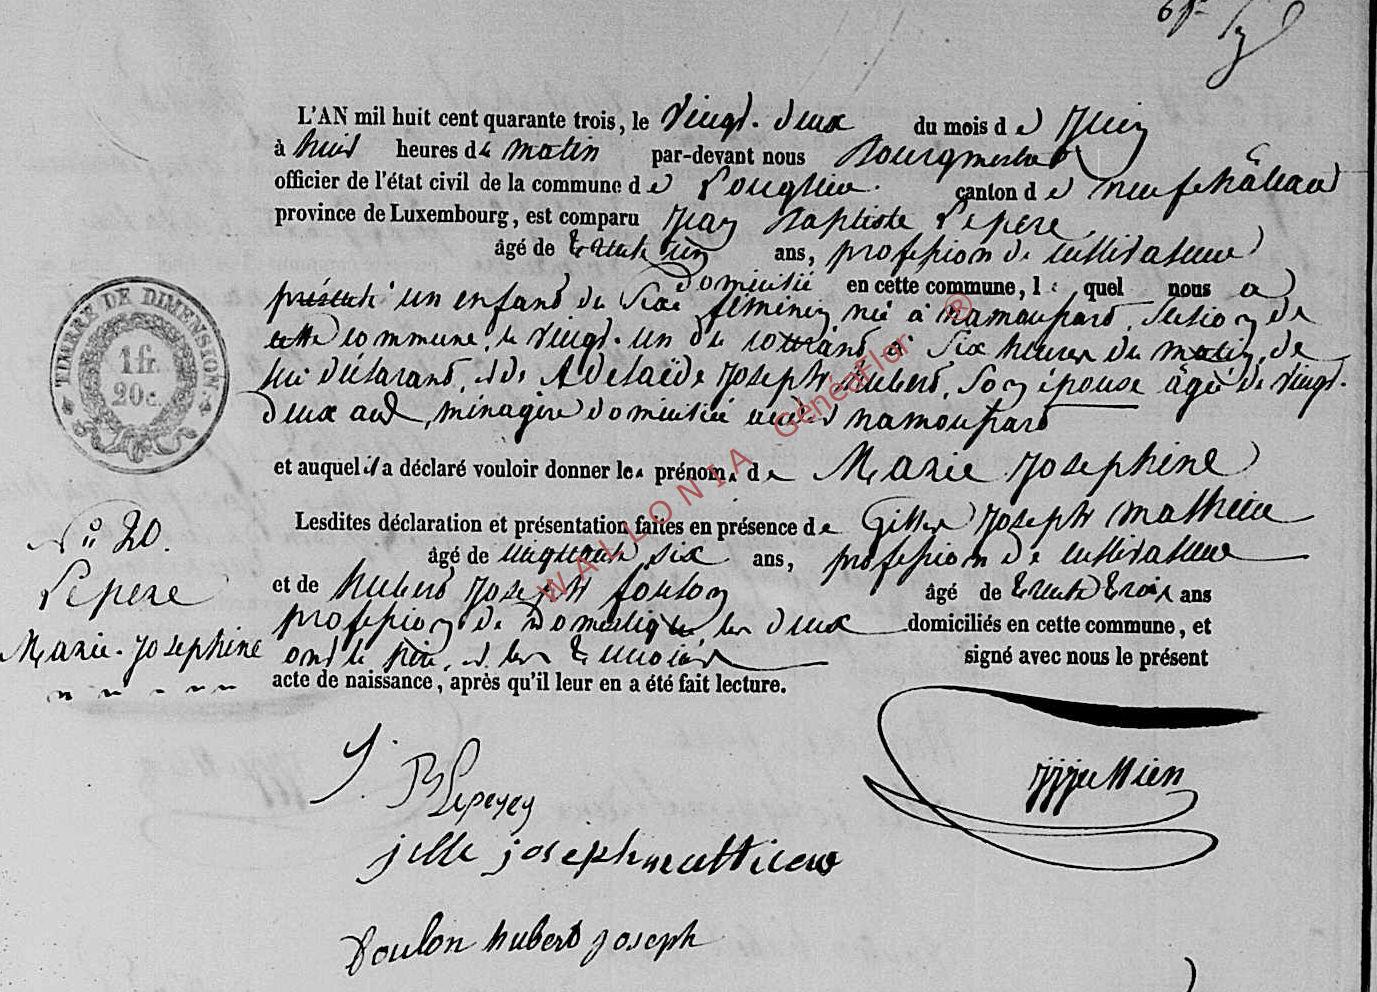 L'AN mil huit cent quarante trois, le Vingt. deux du mois de Juin
à huit heures de matin par-devant nous Bourgmestre
officier de l'état civil de la commune de Longlier. canton de neufchâteau
province de Luxembourg, est comparu Jean Baptiste Pepere
âgé de trente un ans, profession de cultivateur
domicilié en cette commune, le quel nous a
présenté un enfant du sexe féminin, né à namoussart, section de
cette commune, le vingt. un du courant à six heures du matin, de
lui déclarant, et de Adelaïde Joseph hubert, son épouse âgée de vingt.
deux ans, ménagère domiciliée audit namoussart
et auquel il a déclaré vouloir donner les prénoms de Marie Josephine
Lesdites déclaration et présentation faites en présence de Gilles Joseph mathieu
N° 20.
âgé de cinquante six ans, profession de cultivateur
Pepere
et de hubert Joseph foulon âgé de trente trois ans
profession de domestique, les deux domiciliés en cette commune, et
Marie-Josephine
ont le père, et les témoins signé avec nous le présent
acte de naissance, après qu'il leur en a été fait lecture.
TIMBRE DE DIMENSION.
1 fr.
20 c.
WALLONIA GeneaFlor ®
J. B Lepeyey
jille joseph mathieu
foulon hubert joseph